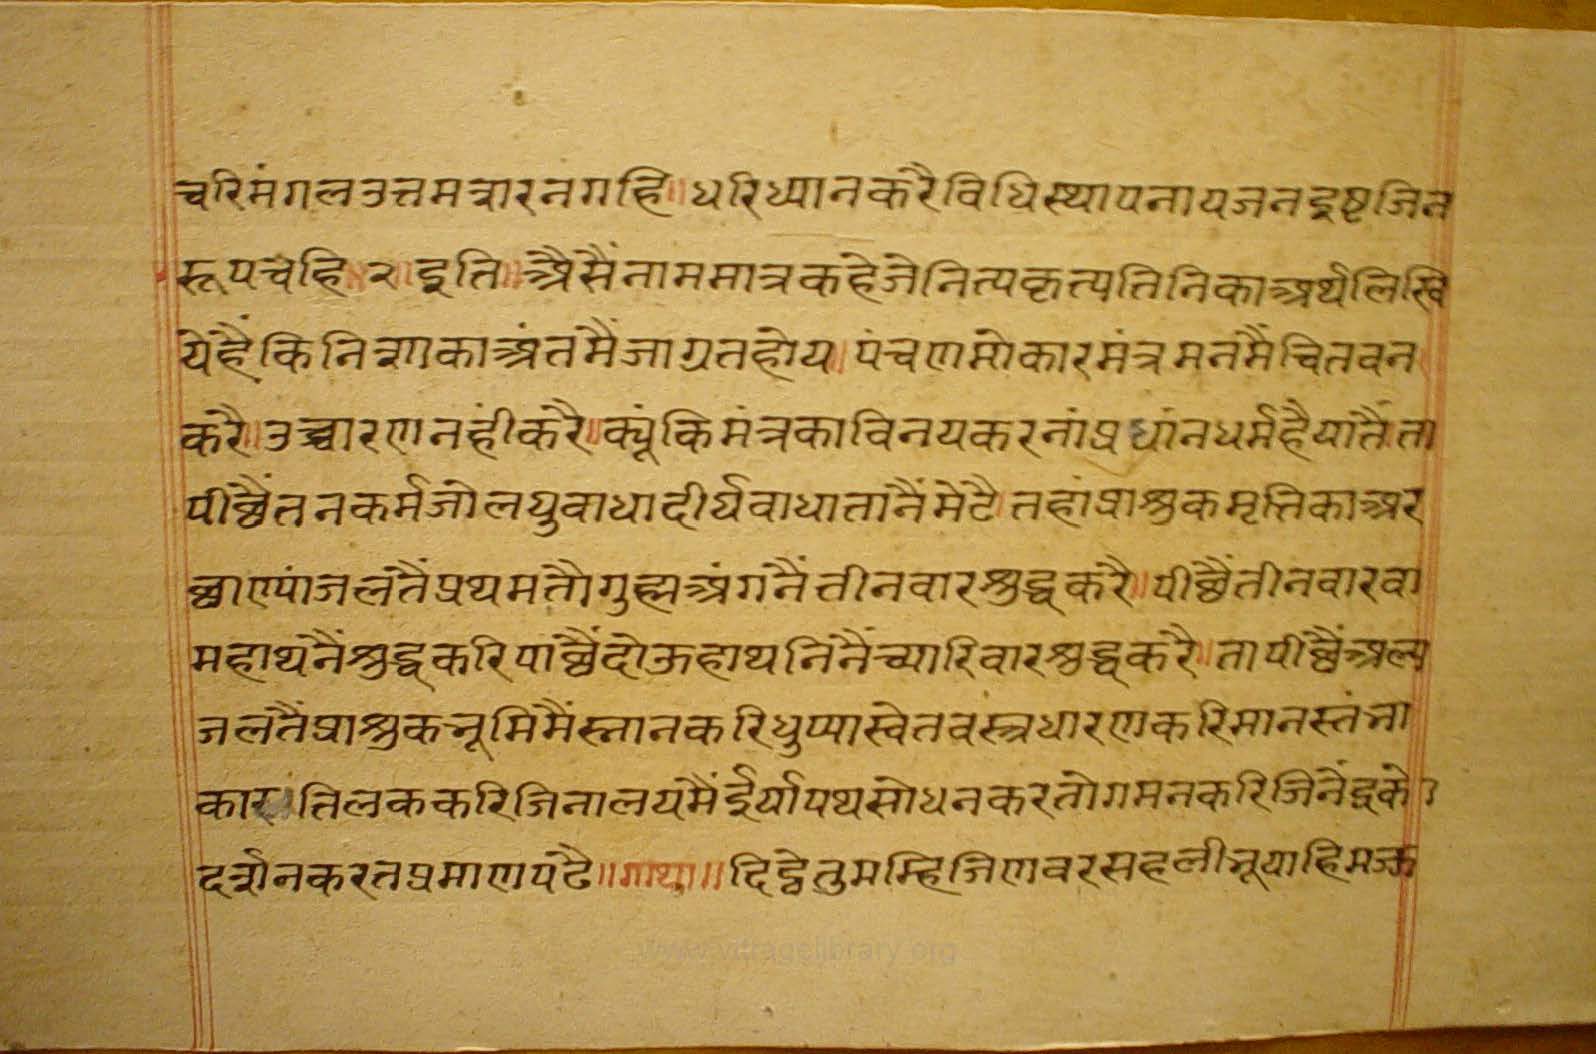 चरिमंगलउत्तमत्रारनगहि॥धरिध्यानकरैविधिस्थापनायजनइष्टजिन
रूपचहि॥२॥इति॥अैसैंनाममात्रकहेजेनित्यकृत्यतिनिकाअर्थलिखि
येहैंकिनिशाकाअंतमैंजाग्रतहोय॥पंचणमोकारमंत्रमनमैंचितवन
करै॥उच्चारणनहीकरै॥क्यूंकिमंत्रकाविनयकरनांप्रधांनधर्महैयातैंता
पीछैंतनकर्मजोलघुवाधादीर्घवाधातानैंमेटैतहांप्राशुकमृत्तिकाअर
छाण्पांजलतैंप्रथमतौगुह्यअंगनैंतीनवारशुद्धकरै॥पीछैंतीनवारवा
महाथनैंशुद्धकरिपाछैंदोऊहाथनिनैंच्यारिवारशुद्धकरै॥तापीछैंअल्प
जलतैंप्राशुकभूमिमैंस्नानकरिधुप्यास्वेतवस्त्रधारणकरिमानस्तंभा
कारतिलककरिजिनालयमैंईर्यापथसोधनकरतोगमनकरिजिनेंद्रके
दर्शनकरतप्रमाणपढै॥गाथा॥दिट्ठेतुमम्हिजिणवरसहलीभूयाहिमज्झ
www.vitragelibrary.org